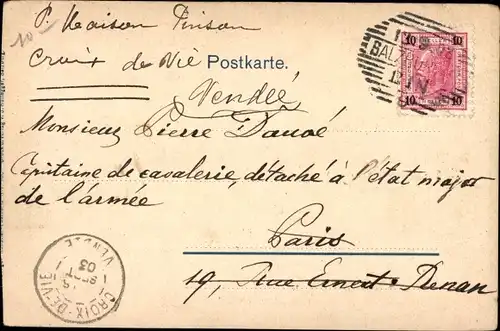 10
P. Maison Pinson
Croix de Vie
Postkarte.
Vendée
Monsieur Pierre
Capitaine de cavalerie, détaché à l'état major
de l'armée
Paris
19, Rue Ernest Renan
10 10
10 10
BALA
CROIX-DE-VIE
VENDÉE
SEPT
03